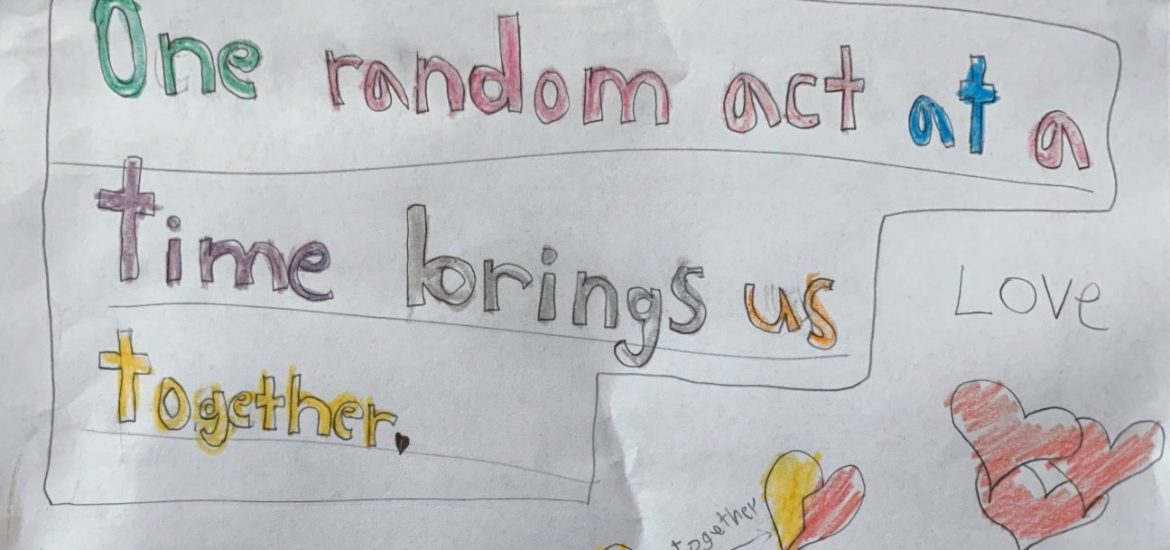 One random act at a
time brings us
together.
Love
together